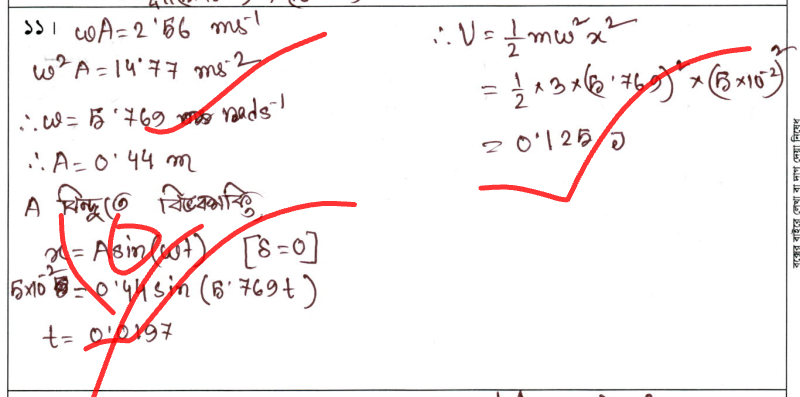 ১১। ωA = 2.56 ms⁻¹
ω²A = 14.77 ms⁻²
∴ ω = 5.769 rads⁻¹
∴ A = 0.44 m
A বিন্দুতে বিভবশক্তি,
x = A sin(ωt) [δ = 0]
5×10⁻² = 0.44 sin (5.769t)
t = 0.0197
∴ U = ½ mω²x²
= ½ × 3 × (5.769)² × (5×10⁻²)²
= 0.125 J
বক্সের বাইরে লেখা বা দাগ দেয়া নিষেধ